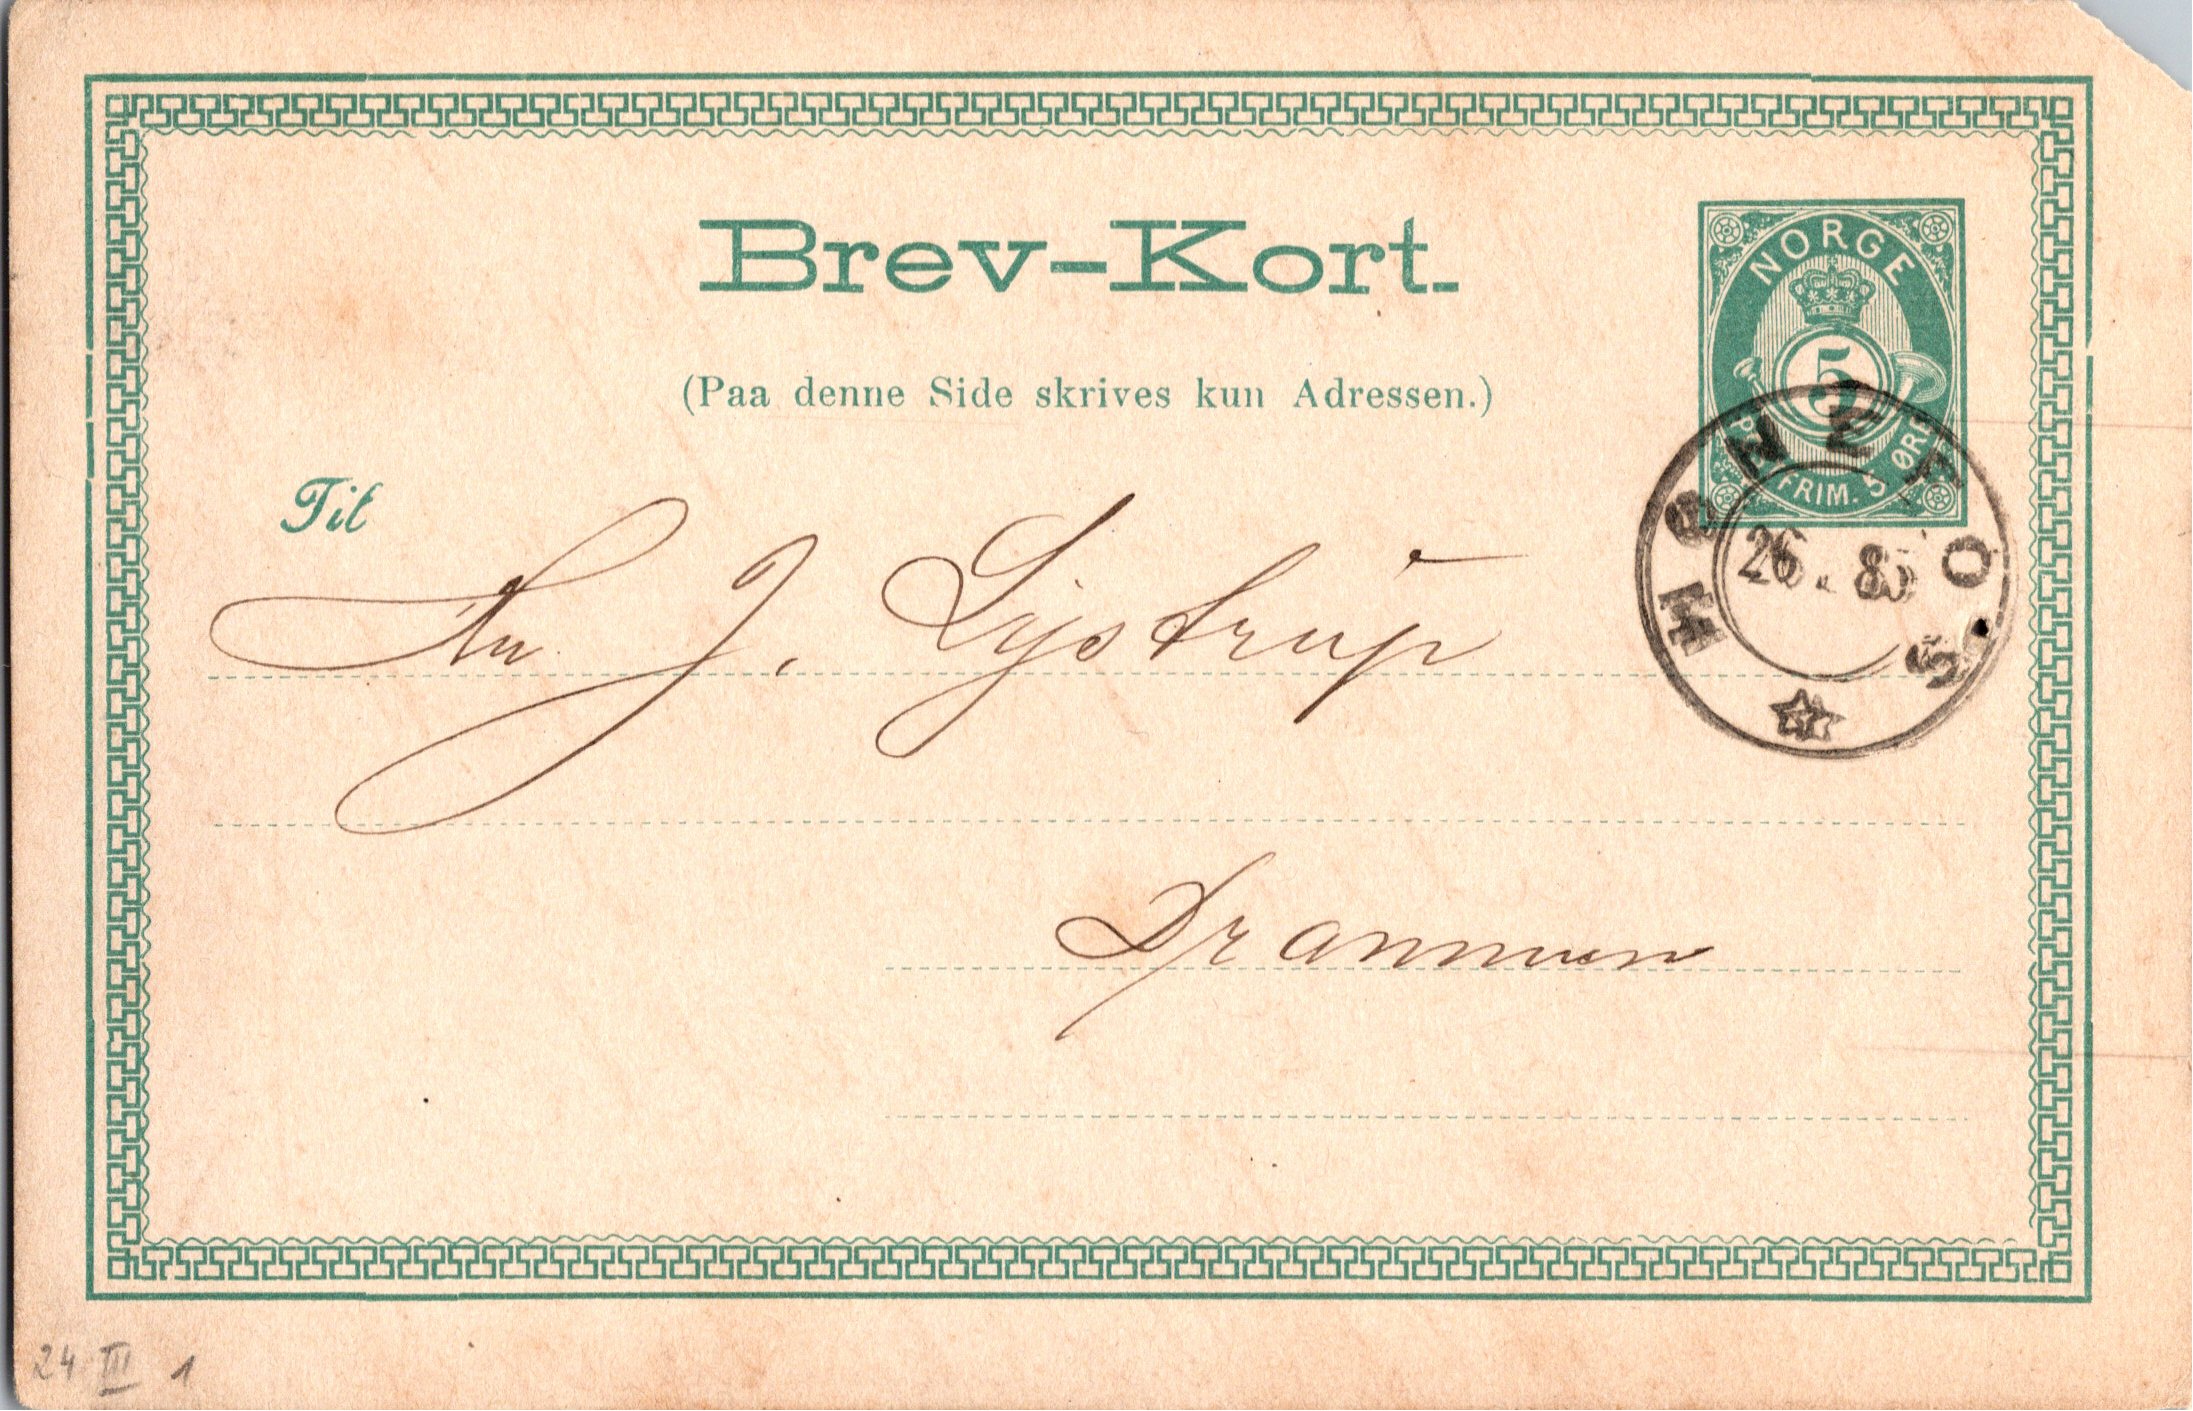 Brev-Kort.
(Paa denne Side skrives kun Adressen.)
NORGE
5
FRIM. 5 ØRE
HØNEFOS.
26. 85
Til
J. Lystrup
Drammen
24 III 1